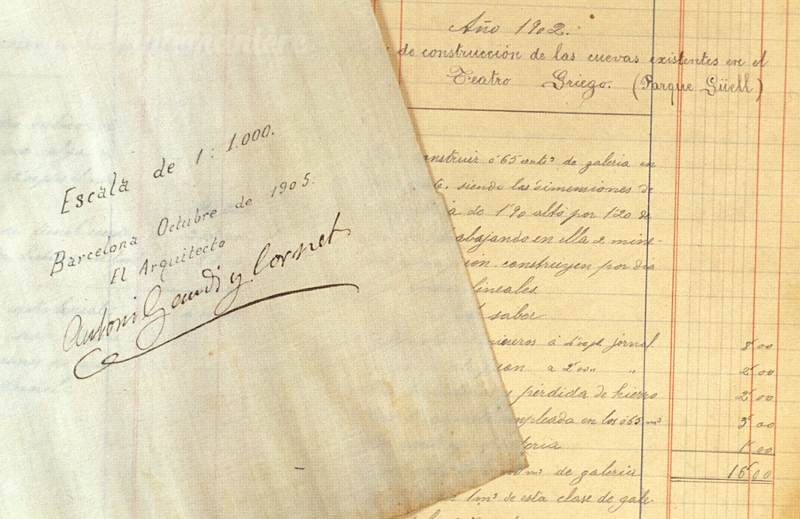 Escala de 1: 1.000.
Barcelona Octubre de 1905.
El Arquitecto
Antoni Gaudi y Cornet
Año 1902.
de construcción de las cuevas existentes en el
Teatro Griego. (Parque Güell)
de galeria en
siendo las dimensiones de
de 1'90 alto por 1'20 de
en ella 2 mine-
construyen por dia
lineales
saber
jornal 8'00
a 2'00 " 2'00
perdida de hierro 2'00
empleada en los 0'65 m³ 3'00
1'00
de galeria 16'00
de esta clase de gale-